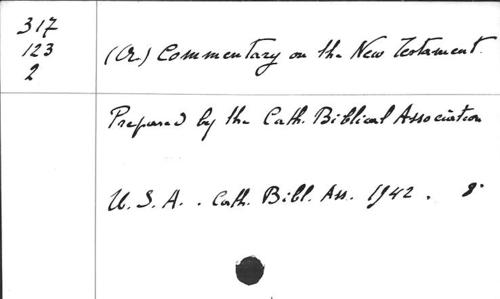 317
123
2
(A) Commentary on the New Testament.
Prepared by the Cath. Biblical Association
U. S. A. . Cath. Bibl. Ass. 1942 . 8°